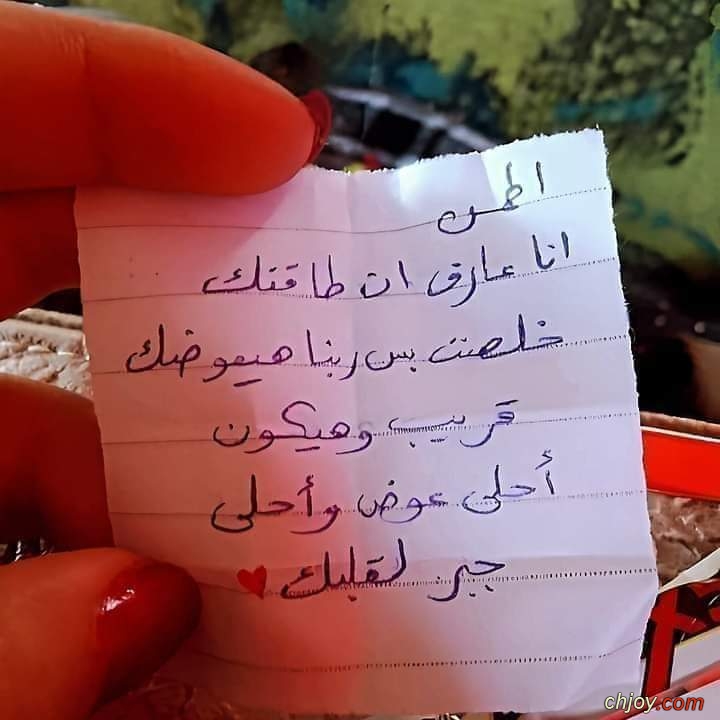 اطمن
انا عارف ان طاقتك
خلصت بس ربنا هيعوضك
قريب وهيكون
أحلى عوض وأحلى
جبر لقلبك
chjoy.com